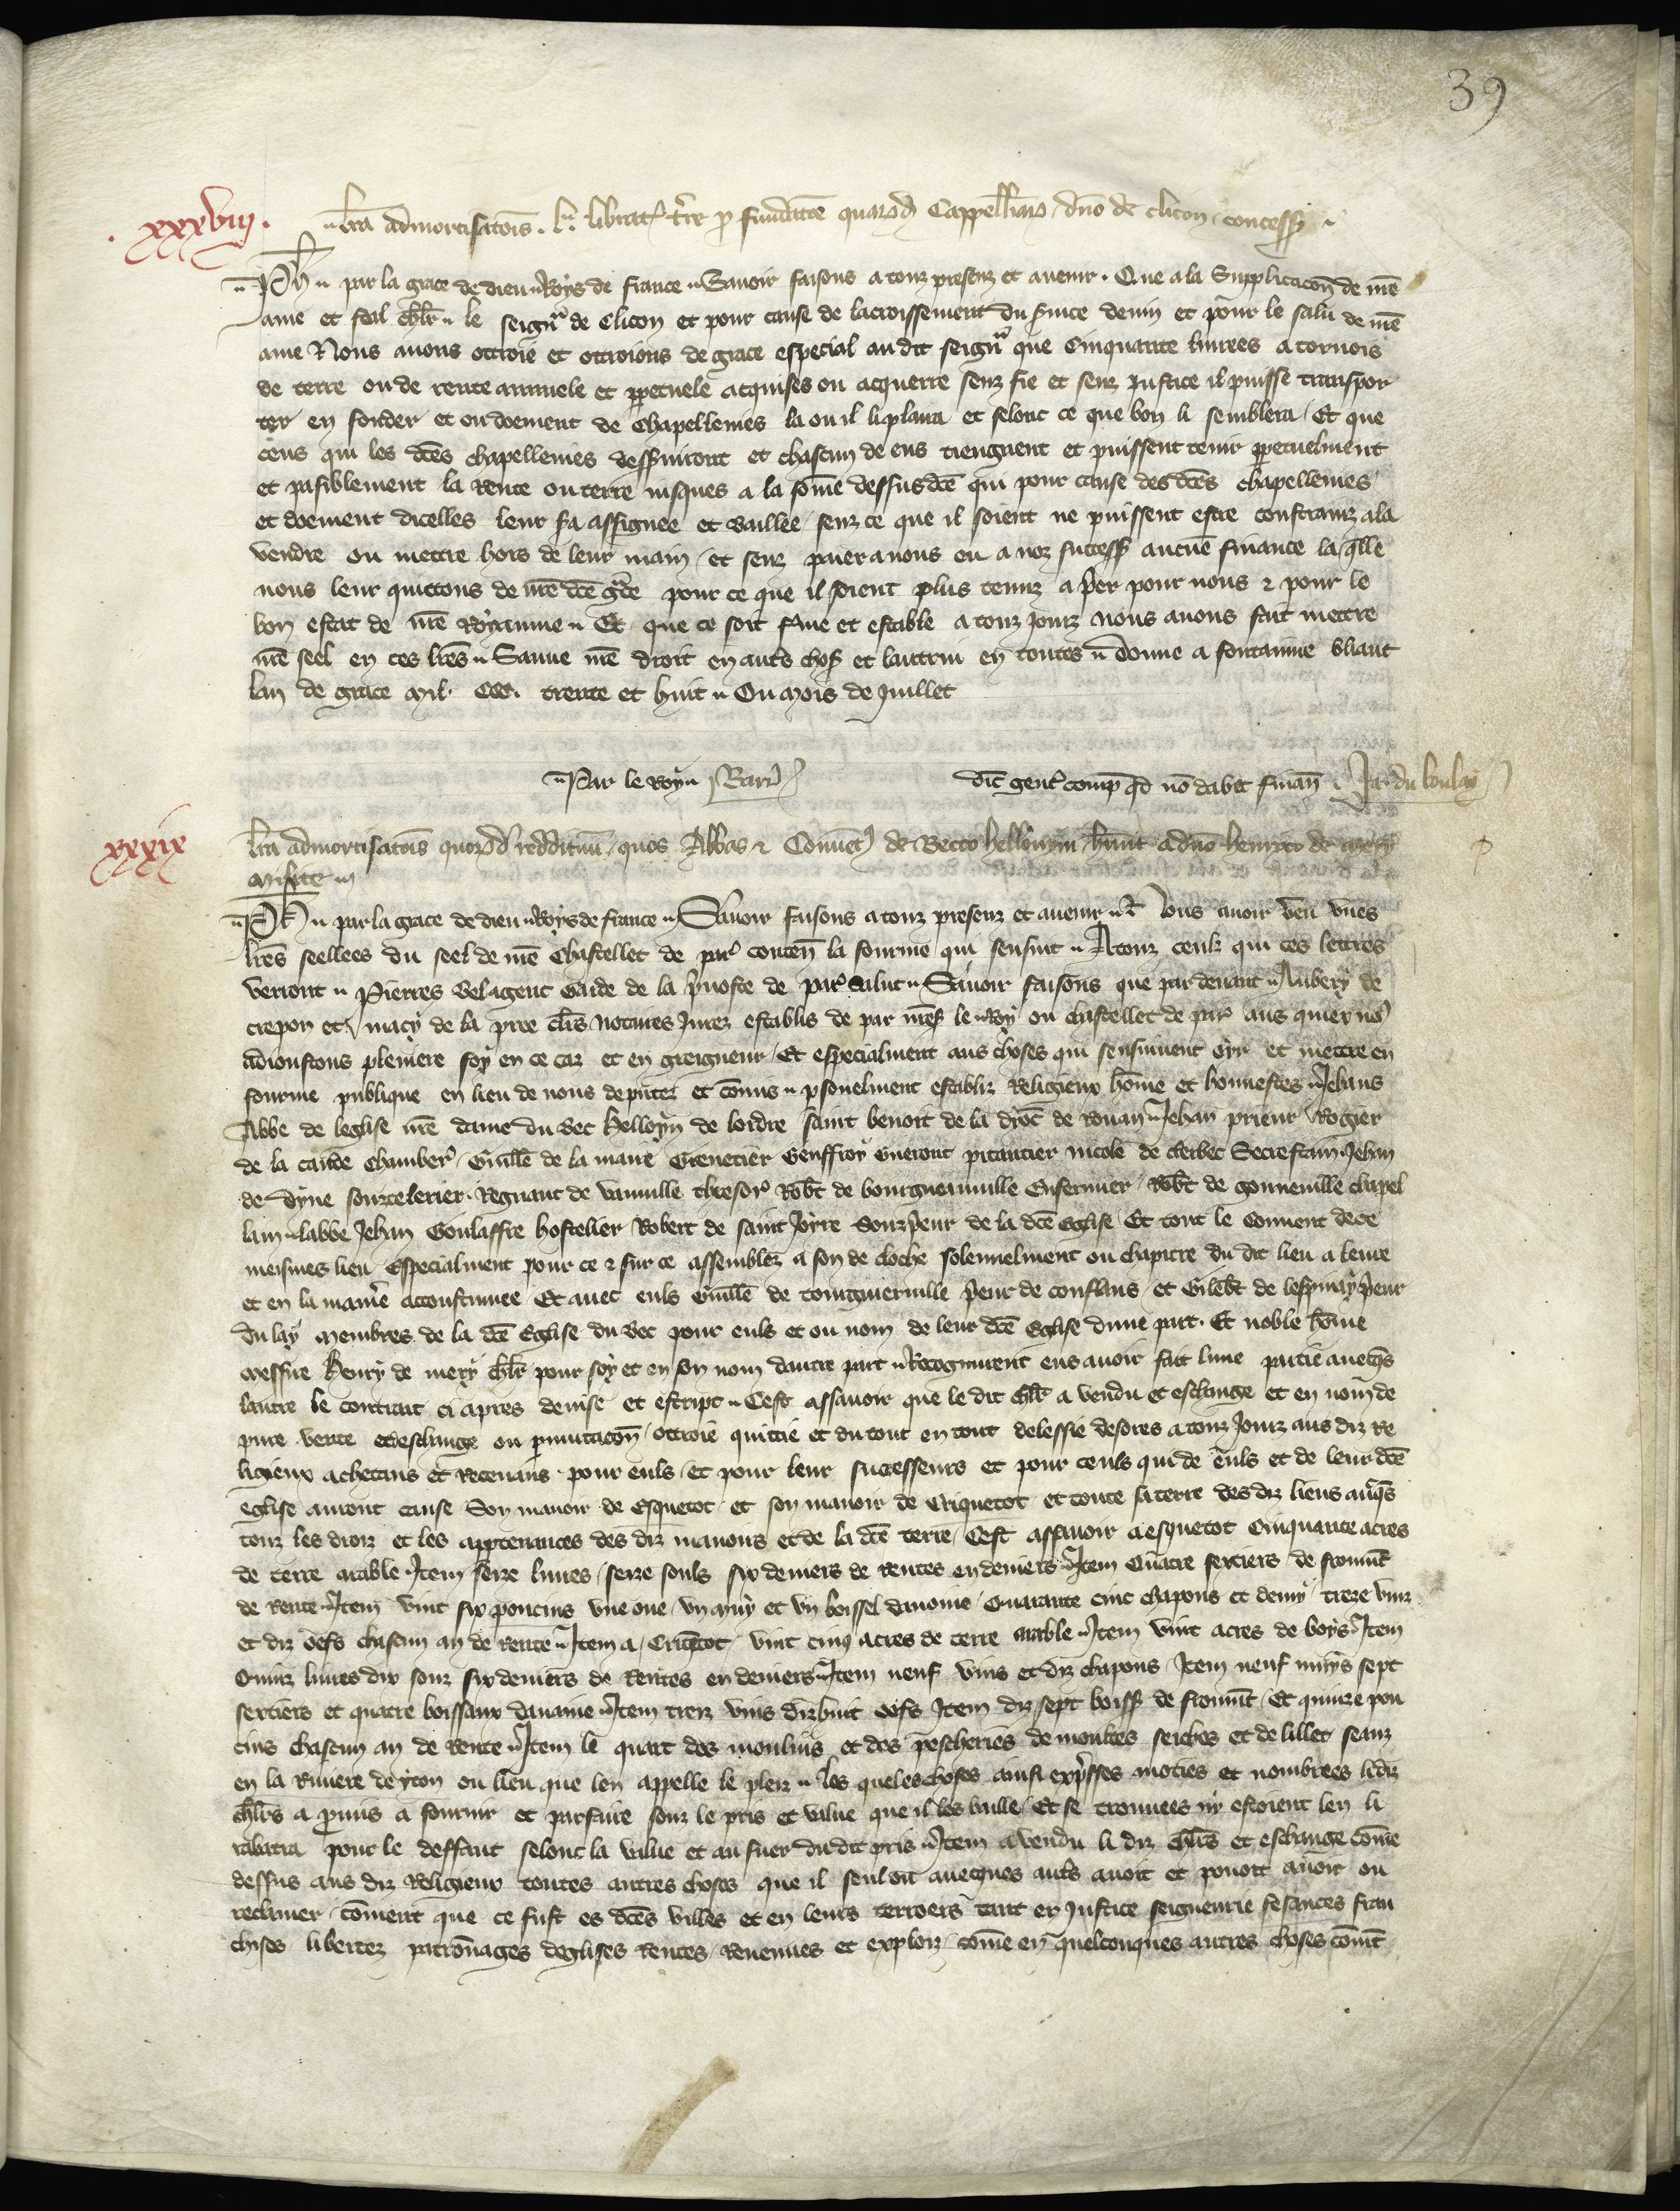 39
.xxxviii.
lra admortisatois. l. librat terre p fundatoe quarud Cappellaru / dno de clicon concess
Ph par la grace de dieu Roys de france Savoir faisons a touz presenz et avenir. Que a la Supplicacon de nre
ame et feal chlr le seigneur de Clicon et pour cause de lacroissement du svice devin et pour le salu de nre
ame Nous avons ottroie et ottroions de grace especial au dit seignr que Cinquante livrees a tornois
de terre ou de rente annuele et ppetuele acquises ou acquerre senz fie et senz justice il puisse transpor
ter en fonder et en doement de Chapellenies la ou il li plaira et selonc ce que bon li semblera / Et que
ceus qui les dces chapellenies desserviront et chascun de eus tiengnent et puissent tenir ppetuelment
et pasiblement la Rente ou terre jusques a la some dessus dce qui pour cause des dces chapellenies
et doement dicelles leur sa assignee et baillee / senz ce que il soient ne puissent estre constrainz a la
vendre ou mettre hors de leur main / et senz paier a nous ou a noz success aucune finance la qlle
nous leur quittons de nre dce grace pour ce que il soient plus tenuz a pier pour nous et pour le
bon estat de nre Royaume Et que ce soit ferme et estable a touz jourz nous avons fait mettre
nre seel en ces lres Sauve nre droit en autres chos et lautrui en toutes donne a fontainne bliaut
lan de grace mil. CCC. trente et huit Ou mois de Juillet
Par le Roy Barr
dic gent comp qd no dabit finan Jac du boulay
xxxix
lra admortisatois quorud reddituu / quos Abbas et Convet de Becco hellouyni / hunt a dno henrico de mery
milite
Ph par la grace de dieu Roys de france Savoir faisons a touz presenz et avenir Nous avoir veu unes
lres seellees du seel de nre Chastellet de par conten la fourme qui sensuit A touz ceulz qui ces lettres
verront Pierres Belagent Garde de la pvoste de par Salut Savoir faisons que par devant Aubery de
crepon et macy de la pree clers notaires Jurez establis de par nres le Roy ou chastellet de par aus quiex no
adioustons pleniere foy en ce caz et en greigneur / Et especialment aus choses qui sensuivent oyr et mettre en
fourme publique en lieu de nous deputez et comis psonelment establiz Religieux home et honnestes Jehans
Abbe de leglise nre dame du Bec Helloyn de lordre saint benoit de la dioc de Rouan Jehan prieur Rogier
de la cande Chamber / Guille de la mare Grenetier Geuffroy Gueront pitantier nicole de clerbec Secrestain Jehan
de dyne souzcelerier. Regnaut de vanville thresor Robt de bourguenville Enfermier / Robt de gonneville chapel
lain labbe Jehan Goulaffre hostelier Robert de saint Joyre Souzpeur de la dce Eglise / Et tout le Convent de ce
meismes lieu Especialment pour ce et sur ce assemblez a son de cloche solennelment ou chapitre du dit lieu a leure
et en la maniere acoustumee / Et avec euls Guille de tourguerville peur de conflans / et Gilebt de lespinay peur
du lay membres de la dce Eglise du Bec pour euls et ou nom de leur dce Eglise dune part. Et noble home
messire Henry de mery chlr pour soy et en son nom dautre part Recognurent eus avoir fait lune partie avecqs
lautre le contraut ci apres devise et escript Cest assavoir que le dit chlr a vendu et eschange et en nom de
pure vente et deschange ou pmutacon / ottroie quittie et du tout en tout delessie desores a touz Jourz aus diz Re
ligieux achetans et Recevans pour euls / et pour leur successeurs et pour ceuls qui de euls et de leur dce
eglise auront cause Son manoir de Esquetot et son manoir de Criquetot et toute sa terre des diz lieus avqes
touz les droiz et les apptenances des diz manoirs et de la dce terre / Cest assavoir a esquetot Cinquante acres
de terre arable Item seize livres / seize souls six deniers de Rentes en deniers Item Quatre sextiers de froumt
de Rente Item vint six poucins une oue / un muy et un boissel davoine / Quarante cinc chapons et demy / treze vinz
et diz oefs chascun an de Rente Item a Criqtot / vint cinq acres de terre arable Item vint acres de boys Item
Quinz livres dix souz six deniers de Rentes en deniers Item neuf vins et diz chapons Item neuf muys sept
sextiers et quatre boissaux davaine Item treiz vins dizhuit oefs Item diz sept boiss de froumt / Et quinze pou
cins chascun an de Rente Item le quart des moulins et des pescheries de moultes seiches et de lillet seanz
en la Riviere de yton ou lieu que len appelle le pleiz les queles choses ainsi expsses moties et nombrees lidiz
chlrs a pmis a fournir et parfaire souz le pris et value que il les baille / Et se trouvees ni estoient len li
rabatra pour le deffaut selonc la value et au fuer du dit pris Item a vendu li diz chlrs et eschange come
dessus aus diz Religieux toutes autres choses que il seul ou avecques auts avoit et povoit avoir ou
reclamer / coment que ce fust es dces villes et en leurs terroers tant en justice seigneurie fesances fran
chises libertez patronages deglises Rentes / Revenues et exploiz / come en quelconques autres choses comt